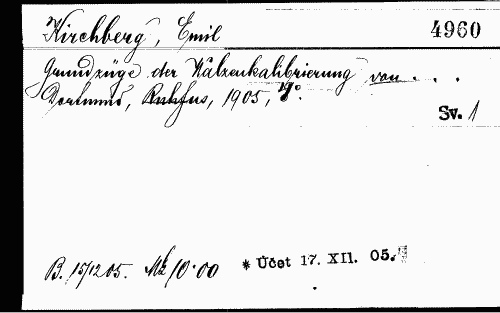 Kirchberg, Emil 4960
Grundzüge der Walzenkalibrierung von . . .
Dortmund, Ruhfus, 1905,
Sv. 1
B. 15/12 05. Mk 10·00 * Účet 17. XII. 05.